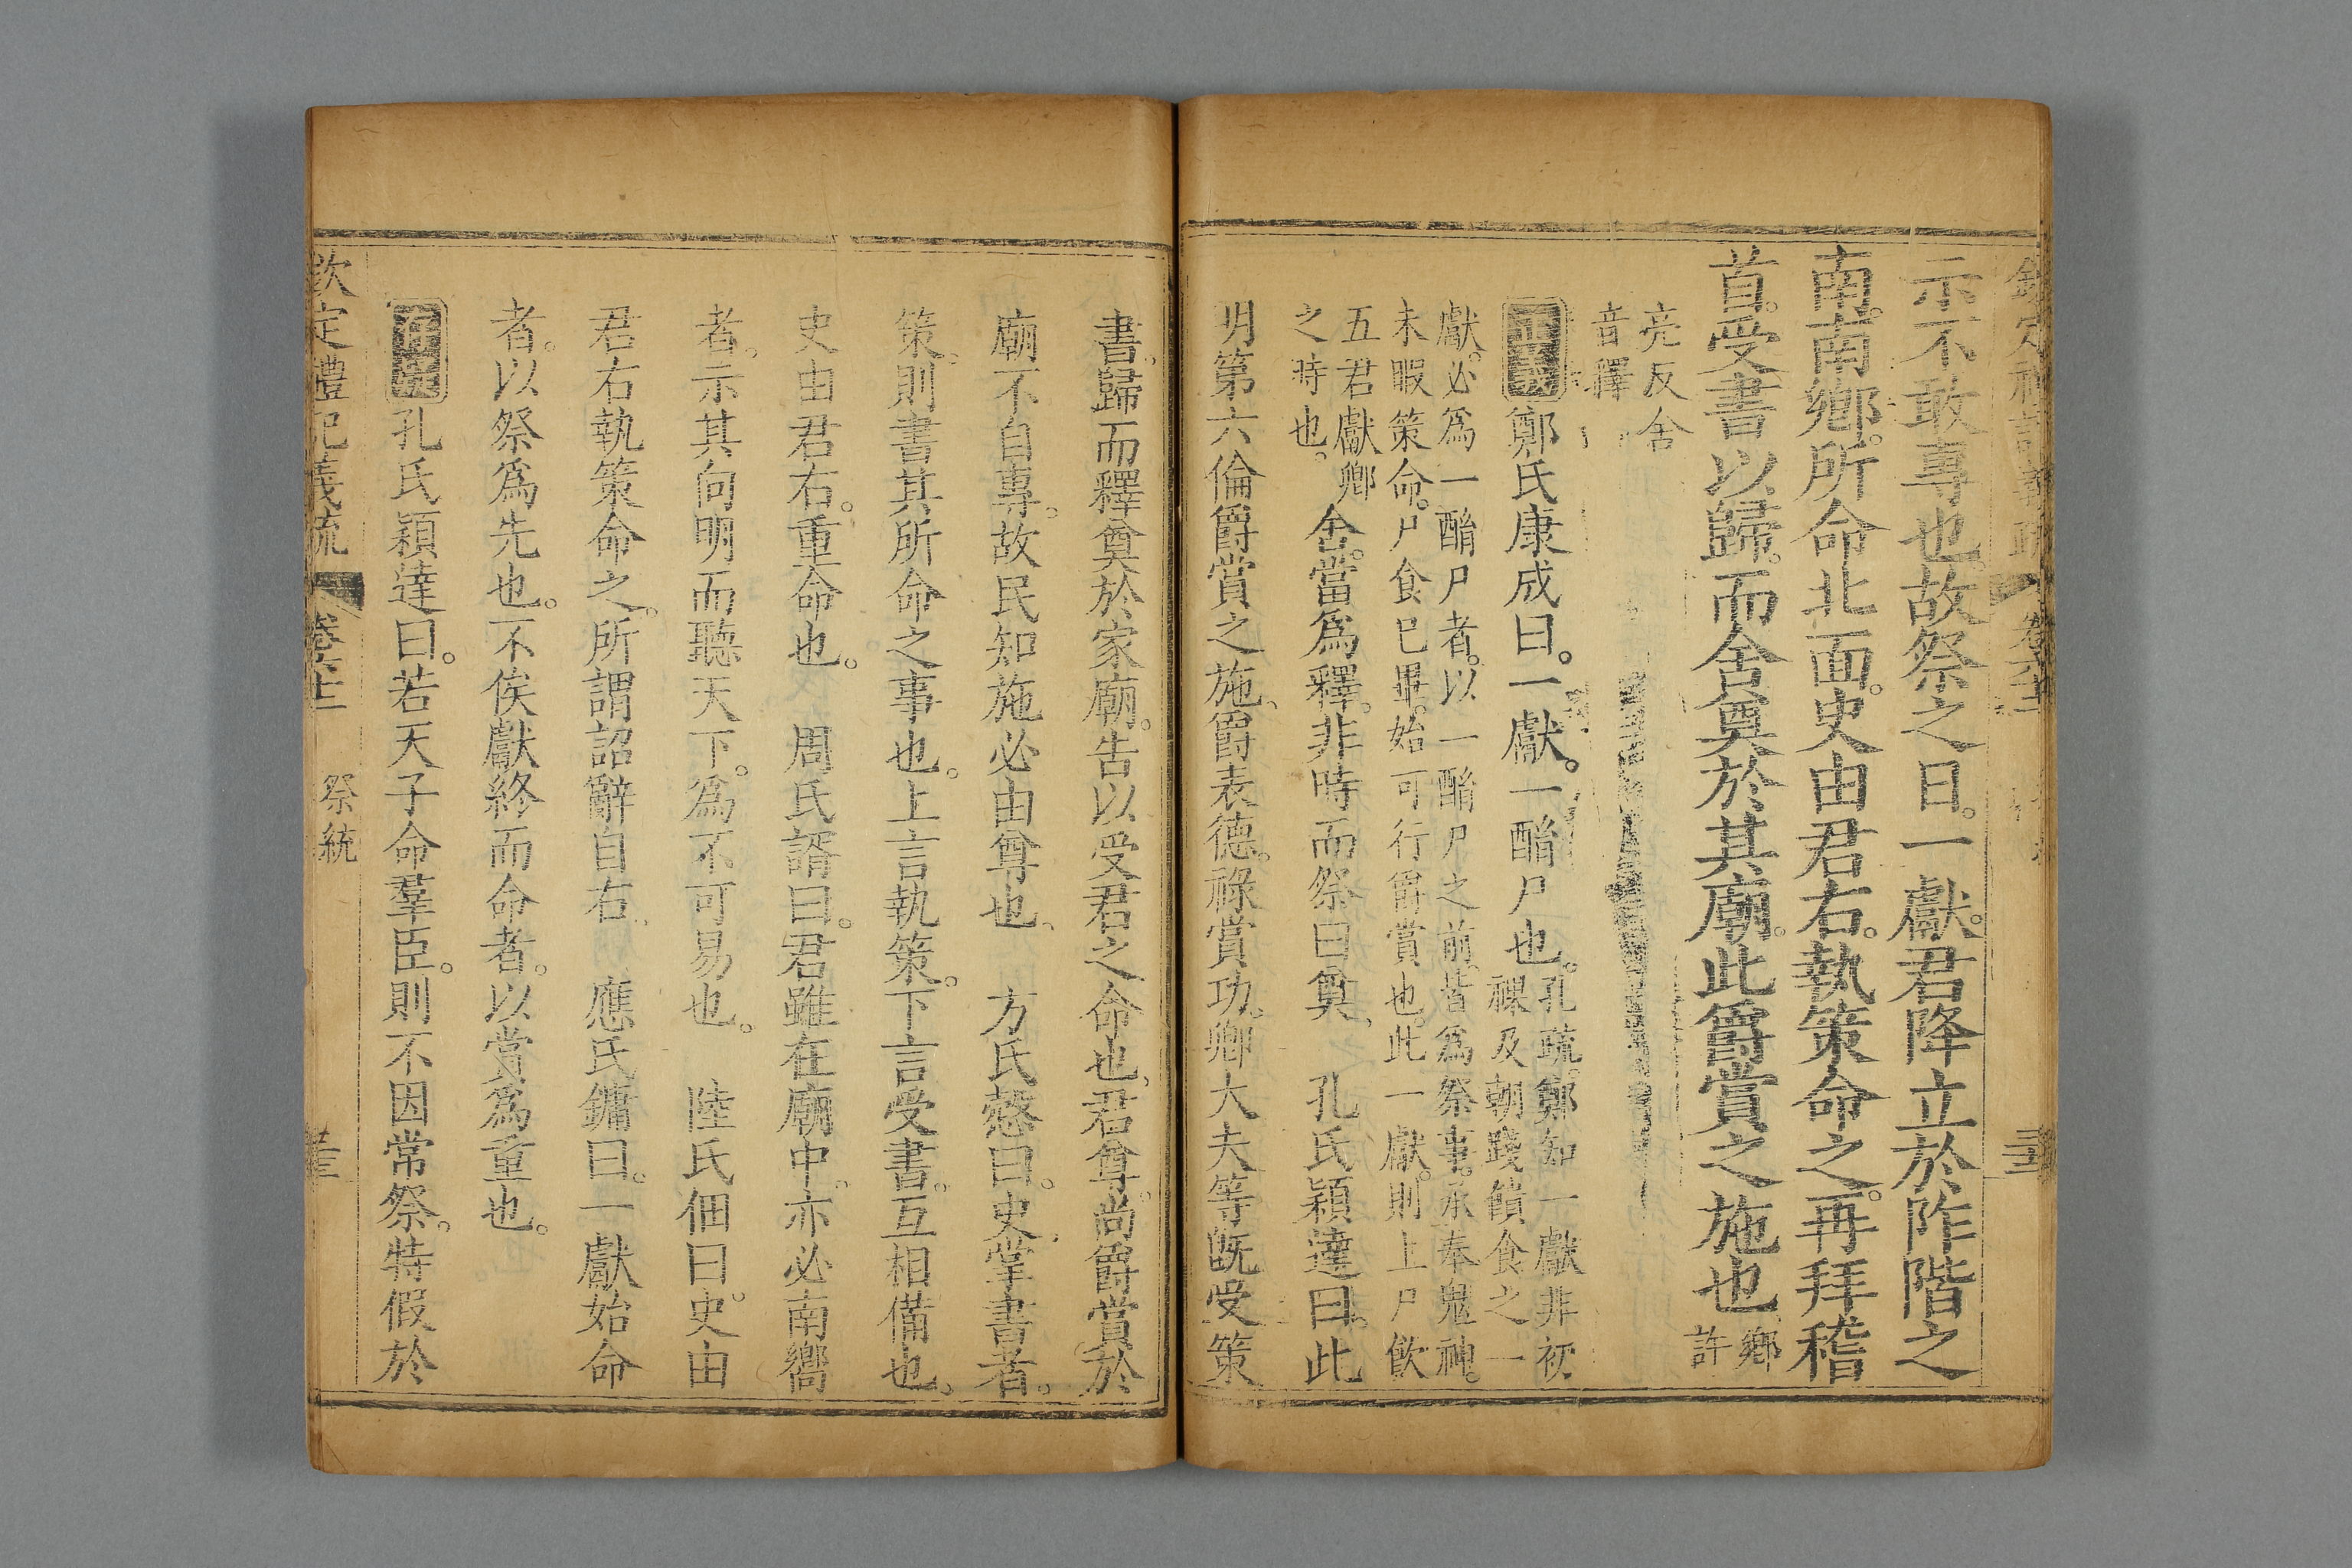 示不敢專也故祭之日。一獻。君降立於阼階之
南。南鄉。所命北面。史由君右。執策命之。再拜稽
首。受書以歸。而舍奠於其廟。此爵賞之施也 鄉許
亮反舍
音釋
正義 鄭氏康成曰。一獻。一酳尸也。孔疏。鄭知一獻非初
祼及朝踐饋食之一
獻。必爲一酳尸者。以一酳尸之前。皆爲祭事。承奉鬼神。
未暇策命。尸食已畢。始可行爵賞也。此一獻。則上尸飲
五君獻卿
之時也。
舍。當爲釋。非時而祭曰奠、 孔氏穎達曰。此
明第六倫爵賞之施、爵表德。祿賞功。卿大夫等旣受策
書。歸而釋奠於家廟。告以受君之命也、君尊。尚爵賞於
廟不自專。故民知施必由尊也、 方氏慤曰。史、掌書者。
策、則書其所命之事也。上言執策。下言受書。互相備也。
史由君右。重命也。 周氏諝曰。君雖在廟中。亦必南嚮
者。示其向明而聽天下。爲不可易也。 陸氏佃曰。史由
君右執策命之。所謂詔辭自右、 應氏鏞曰。一獻始命
者。以祭爲先也。不俟獻終而命者。以賞爲重也。
孔氏穎達曰。若天子命羣臣。則不因常祭。特假於
欽定禮記義疏 祭統